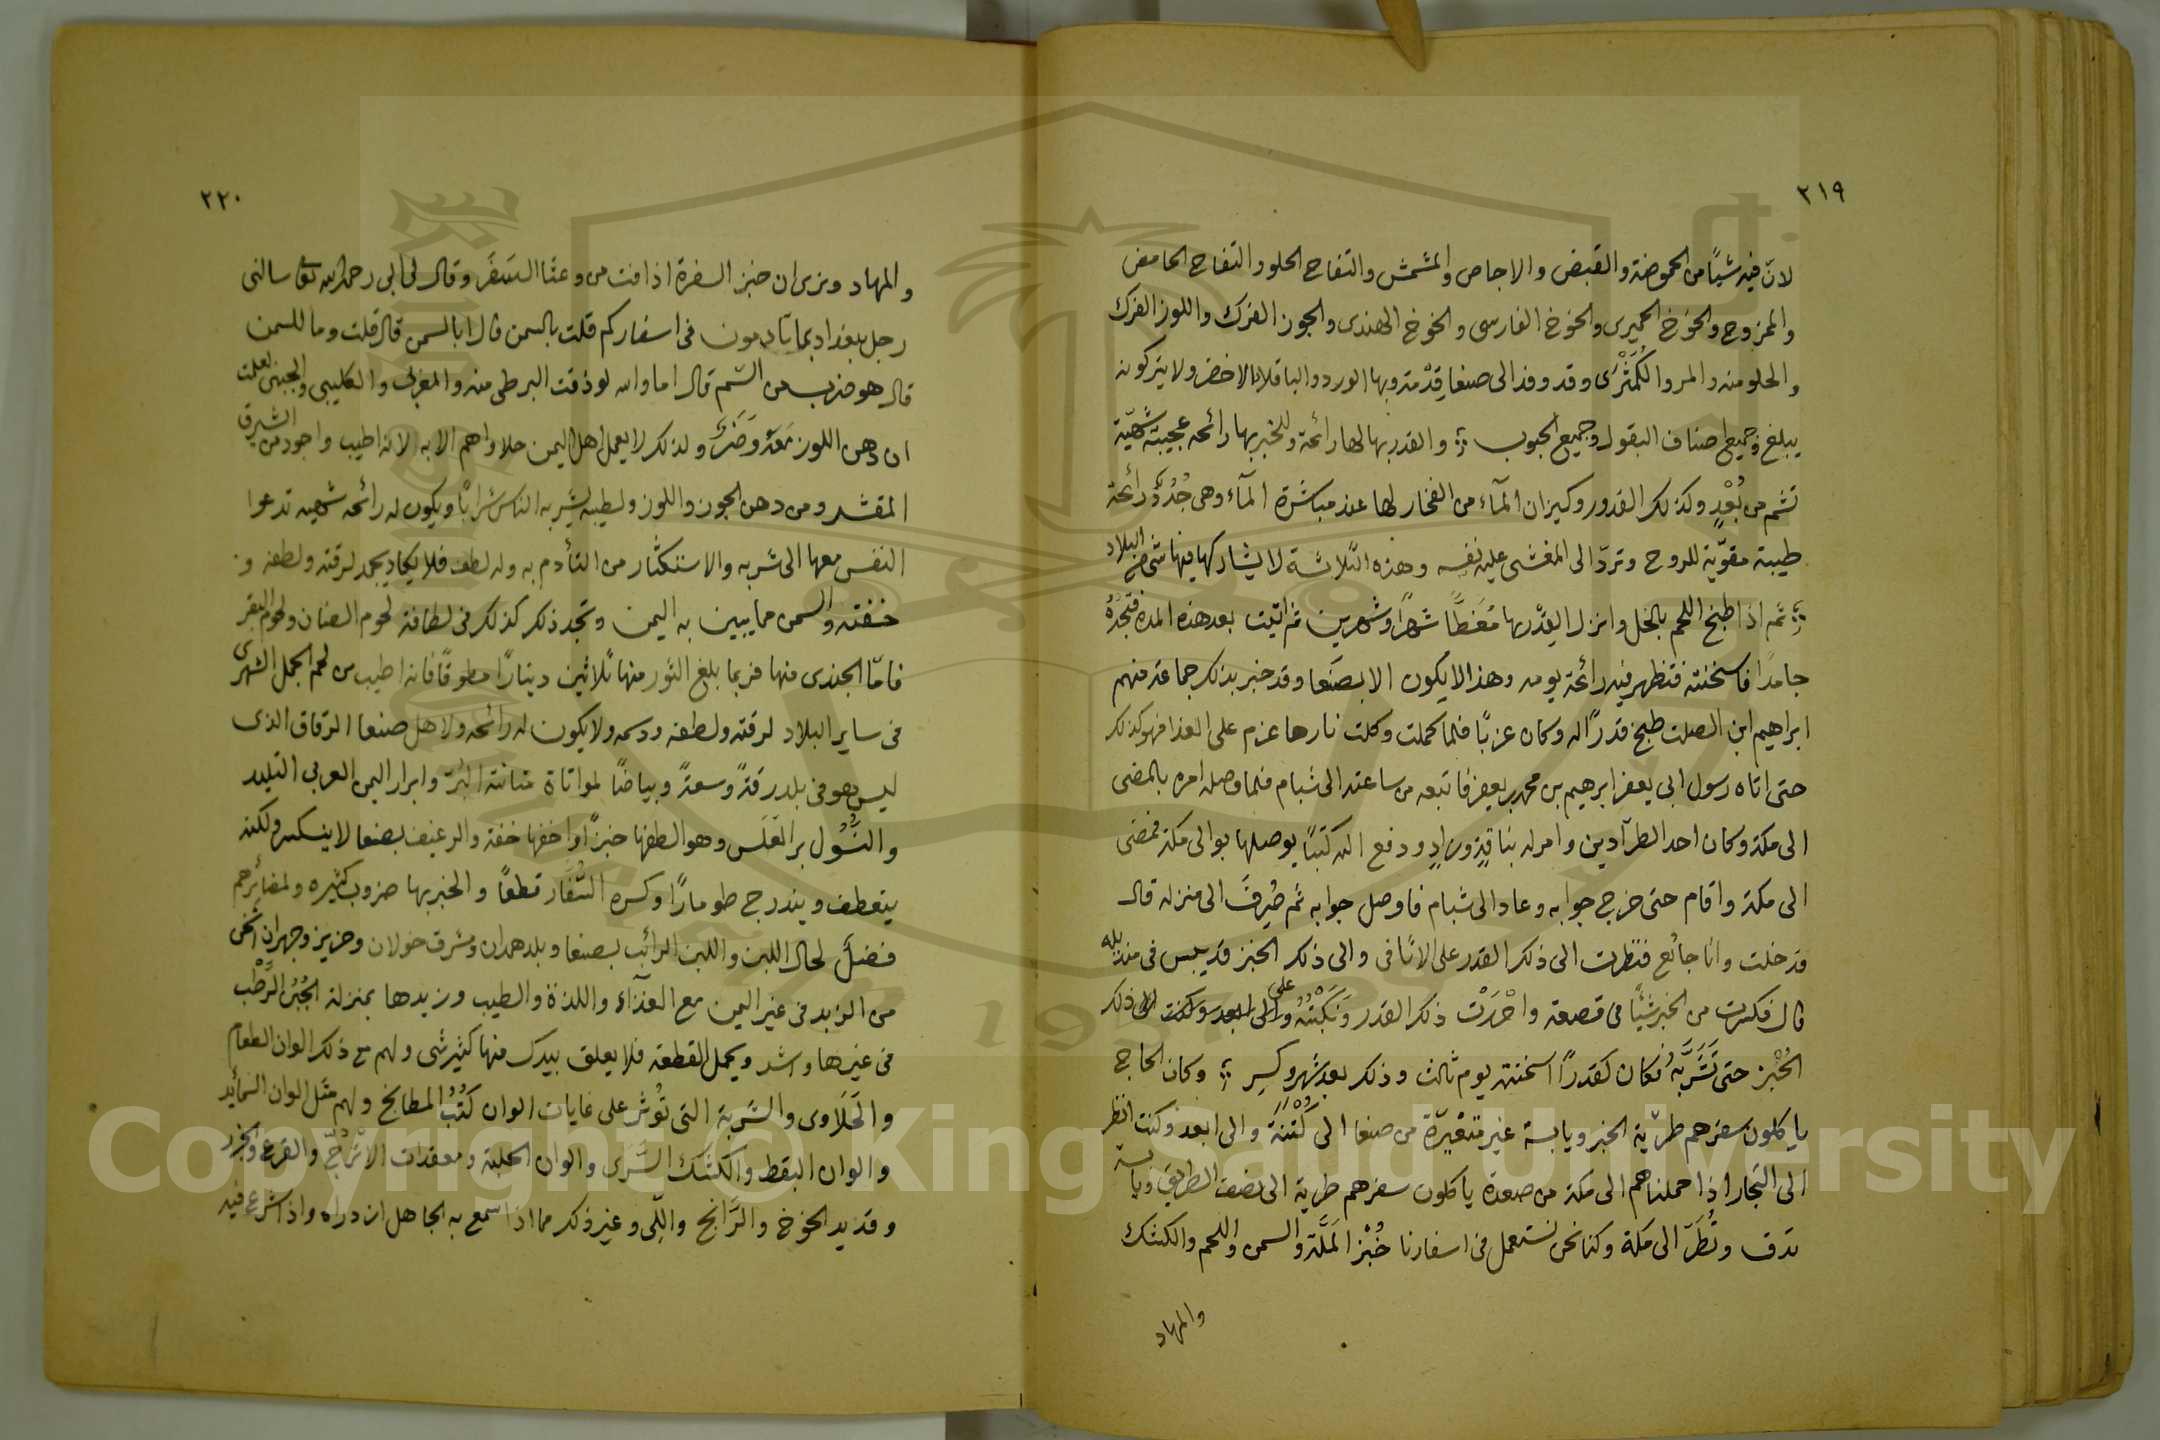 ٢١٩
لان فيه شيئًا من الحموضة والقبض والاجاص والمشمش والتفاح الحلو والتفاح الحامض
والممزوج والخوخ الحميرى والخوخ الفارسى والخوخ الهندى والجوز الفرك واللوز الفرك
والحلو منه والمر والكُمَّثْرَى وقد وفد الى صنعا قِدْمتوبها الورد والباقلاء الاخضر ولا يتركونه
يبلغ وجميع اصناف البقول وجميع الحبوب والقدر بها لها رائحة وللخبز بها رائحه عجيبة شهيّة
تشم من بُعْدٍ وكذلك القدور وكيزان المآء من الفخار لها عند مباشرة المآء وهى جُدُدٌ رائحة
طيبة مقوّية للروح وتردّ الى المغشى عليه نفسه وهذه الثلاثة لا يشاركها فيها شئ من البلاد
ثم اذا طبخ اللحم بالخل وانزل القدر بها مُغَطًّا شهرًا وشهرين ثم اتيت بعد هذه المدة فتجدُهُ
جامدًا فاسخنته فتظهر فيه رائحة يومه وهذا لا يكون الا بصنعا وقد خبر بذلك جماعة منهم
ابراهيم ابن الصلت طبخ قدرًا له وكان عزبًا فلما كملت وكلت نارها عزم على الغدا فهو كذلك
حتى اتاه رسول ابى يعفر ابرهيم بن محمد بن يعفر فاتبعه من ساعته الى شبام فلما وصله امره بالمضى
الى مكة وكان احد الطرآدين وامر له بناقةٍ وزادٍ ودفع اليه كتبًا يوصلها بوالى مكة فمضى
الى مكة واقام حتى خرج جوابه وعاد الى شبام فاوصل جوابه ثم صُرِفَ الى منزله قال
فدخلت وانا جائع فنظرت الى ذلك القدر على الاثافى والى ذلك الخبز قد يبس فى منديله
قال فكسرت من الخبز شيئًا فى قصعة واحْدَرْت ذلك القدر وَنَكَبْتُهُ على ذلك
الخُبْز حتى تَشَرَّبَهُ فكان كقدرًا اسخنته يوم ثالث وذلك بعد شهر وكسر وكان الحاج
ياكلون سفرهم طريّة الخبز ويابسة غير متغيّرة من صنعا الى كُتْنَةَ والى ابعد وكنت انظر
الى التجار اذا حملناهم الى مكة من صعدة ياكلون سفرهم طرية الى نصف الطريق ويابسة
تدق وتُطَرّ الى مكة وكنا نحن نستعمل فى اسفارنا خُبْزَ المَلَّة والسمن واللحم والكشك
والمهاد
٢٢٠
والمهاد ونرى ان خبز السفرة اذا فت من وعثا السَفَر وقال لى ابى رحمه الله تعا سالنى
رجل ببغداد بما تآدمون فى اسفاركم قلت بالسمن قال ابالسمن قال قلت وما للسمن
قال هو ضرب من السّم قال اما والله لو ذقت البرطى منه والمغربى والكليبى والجبنى لعلمت
ان دهن اللوز مَعَهُ وَضَرٌ ولذلك لا يعمل اهل اليمن حلاواهم الا به لانه اطيب واجود من الشيرق
المقشر ومن دهن الجوز واللوز ولطيبه يشربه الناس شرابًا ويكون له رائحه شهيه تدعوا
النفس معها الى شربه والاستكثار من التأدم به وله لطف فلا يكاد يجمد لرقته ولطفه و
خفته والسمن مما يبين به اليمن وتجد ذلك كذلك فى لطافة لحوم الضان ولحوم البقر
فامّا الجندى منها فربما بلغ الثور منها ثلاثين دينارًا مطوقًا فانه اطيب من لحم الجمل الشهرى
فى ساير البلاد لرقته ولطفه ودسمه ولا يكون له رائحه ولاهل صنعا الرقاق الذى
ليس هو فى بلد رقةً وسعةً وبياضًا لمواتاة متانة البُرّ وابرار اليمن العربى التليد
والنُّسُول بر العَلَس وهو الطفها خبزًا واخفها خفة والرغيف بصنعا لا ينكسر ولكنه
يتعطف ويندرج طومارًا وكسره السُّفار قطعًا والخبز بها ضروب كثيره ولمضائرهم
فضلٌ لحال اللبن واللبن الرائب بصنعا وبلد همدان ومشرق خولان وحزيز وجهران اثخن
من الزبد فى غير اليمن مع الغذآء واللذة والطيب وزبدها بمنزلة الجُبُن الرَّطْب
فى غيرها واشد ويحمل القطعه فلا يعلق بيدك منها كثير شى ولهم مع ذلك الوان الطعام
والحَلَاوى والشربة التى تُوثر على غايات الوان كُتُبُ المطابخ ولهم مثل الوان السمائد
والوان البقط والكشك السَّرِى والوان الحلبة ومعقدات الاتْرُجّ والقرع والجزر
وقديد الخوخ والرَّانج واللّبى وغير ذلك مما اذا سمع به الجاهل ازدراه واذا شرع فيه
Copyright © King Saud University